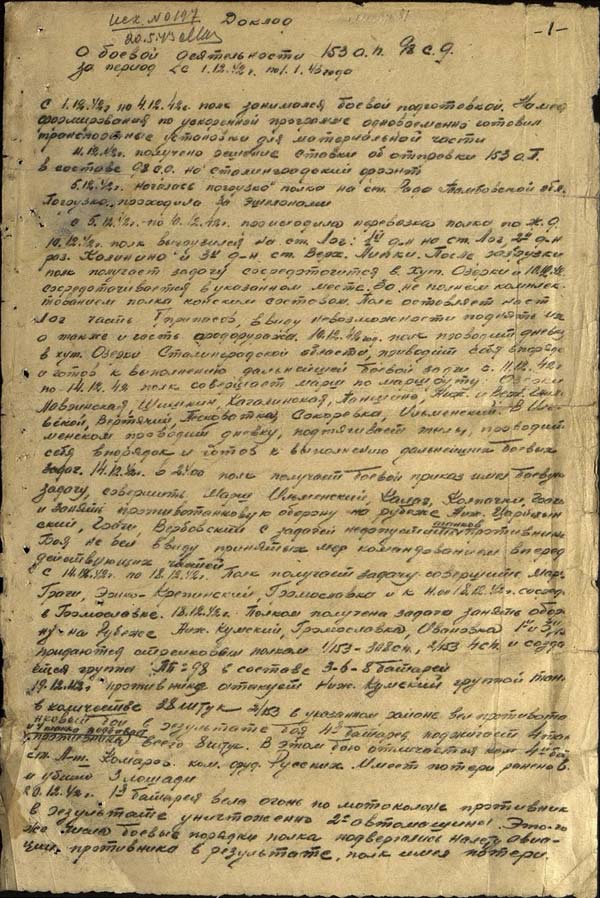 Исх. № 0197
20.5.43
Доклад
-1-
О боевой деятельности 153 а.п. 98 с.д.
за период с 1.12.42г. по 1.1.43 года
С 1.12.42г по 4.12.42г полк занимался боевой подготовкой.
формирования по ускоренной программе одновременно готовил
транспортные установки для материальной части
получено решение ставки об отправки 153 а.п.
в составе 98 с.д. на Сталинградский фронт
5.12.42г. началась погрузка полка на ст. Рада Тамбовской обл.
Погрузка проходила за эшелонами
с 5.12.42г.-по 10.12.42г. происходила перевозка полка по ж.д.
10.12.42г. полк выгрузился на ст. Лог: 1й д-н на ст. Лог, 2й д-н
раз. Калинино и 3й д-н ст. Верх. Липки. После
полк получает задачу сосредоточится в Хут. Озерки и
сосредотачивается в указанном месте. Во не полном комплек-
тованием полка конским составом. Полк оставляет на ст
Лог часть б/припасов, ввиду невозможности поднять их
а также и часть продфуража. полк проводит дневку
в хут. Озерки Сталинградской области, приводит себя впорядок
и готов к выполнению дальнейшей боевой задачи с. 11.12.42г
по 14.12.42 полк совершает марш по маршруту: Озерки
Шишкин, Качалинская, Паншино, Ниж. и Верх.
Вертячий, Песковатка, Сокаревка, Ильменский. В Иль-
менском проводит дневку, подтягивает тылы, приводит
себя впорядок и готов к выполнению дальнейших боевых
задач. 14.12.42г. в 24.00 полк получает боевой приказ имея боевую
задачу, совершить марш Ильменский, Калач, Колпачки,
и занять противотанковую оборону на рубеже Ниж. Царицын-
ский, Грачи, Вербовский с задачей недопустить танков противника
Боя не вел ввиду принятых мер командованием вперед
действующих частей
С 14.12.42г по 18.12.42г. Полк получает задачу совершить марш
Грачи, Эрико-Крепинский, Громославка и к 18.12.42г. сосред.
в Громославке. 18.12.42г. Полком получена задача занять оборо-
ну на Рубеже Ниж. Кумский, Громославка, Ивановка 1й и 3й
придаются стрелковым полкам 1/153-308 сп, 2/153 4 сп и созда-
ется группа в составе 3-6-8 батарей
19.12.42г противник атакует Ниж. Кумский группой танк
в количестве 28 штук 2/153 в указанном районе вел противота-
нковый бой в результате боя 4я батарея поджигает 4 танк
противника всего 8 штук. В этом бою отличается ком. 4й ба
ст. л-т. Комаров. ком. оруд. Русских. Имеет потери ранено 6.
и убито 3 лошади
20.12.42г. 1я батарея вела огонь по мотоколоне противник
в результате уничтожено 2 автомашины. Этого
же числа боевые порядки полка подверглись налету авиа-
ции противника в результате, полк имел потери.